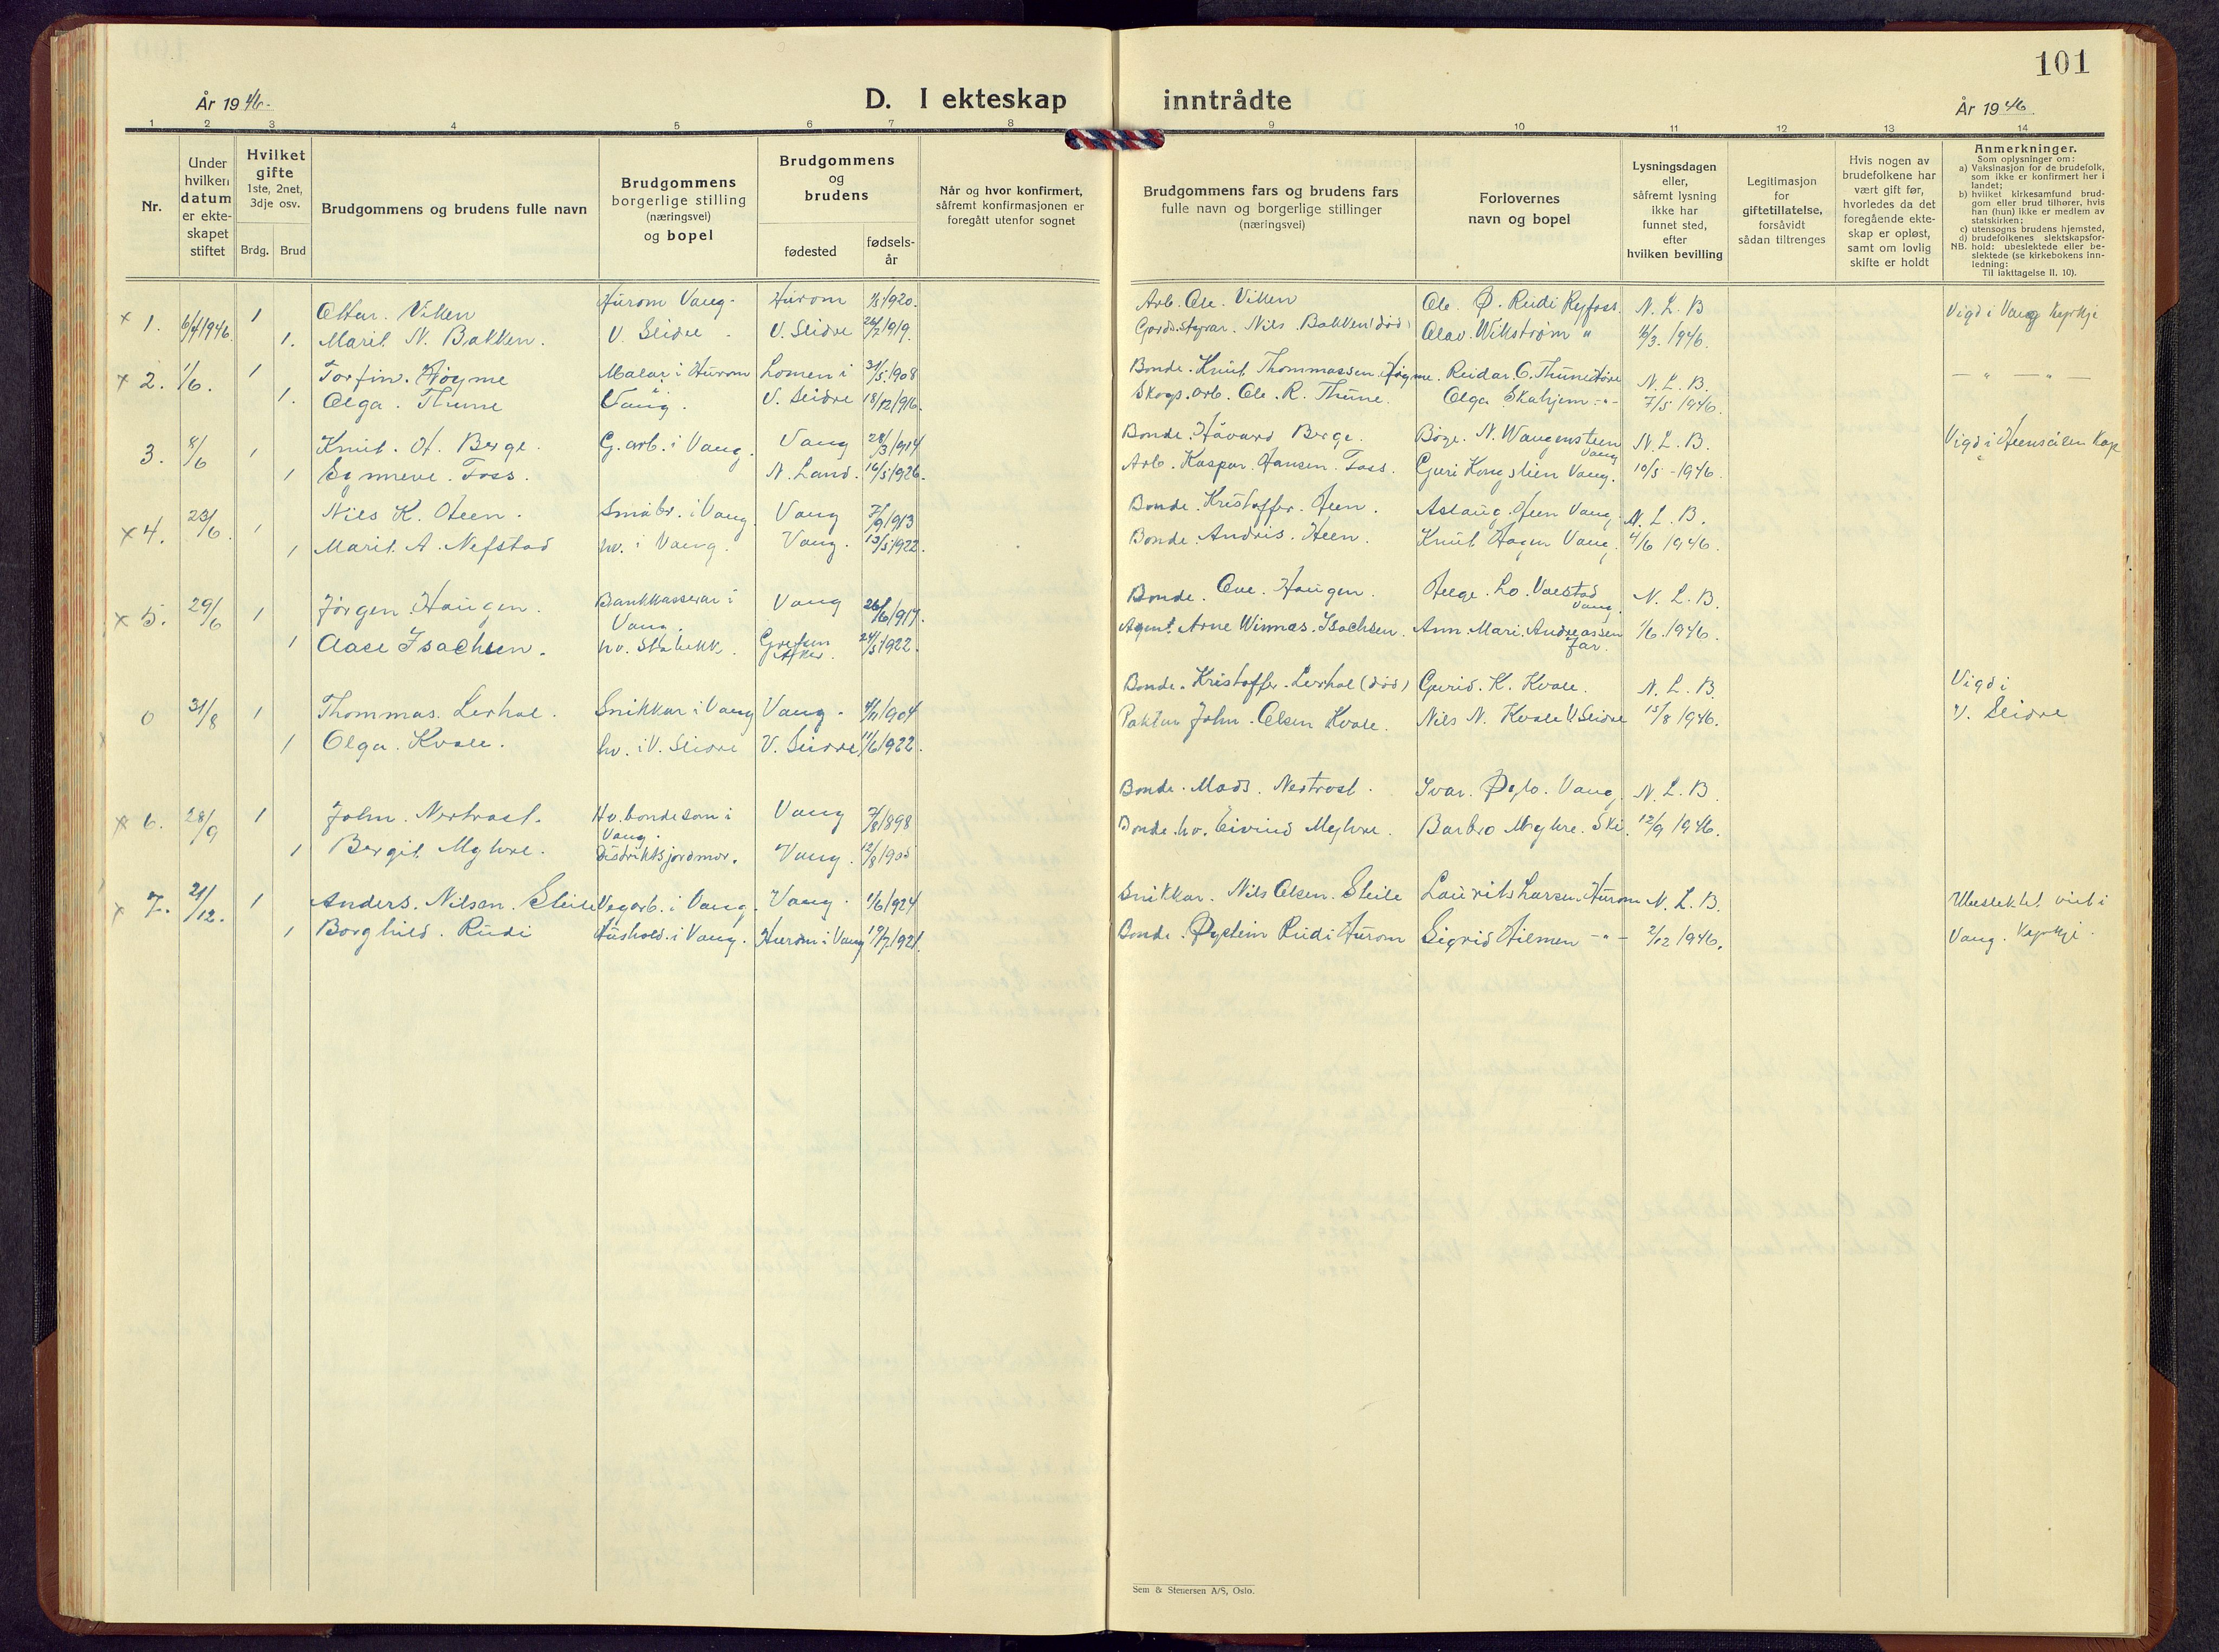 101
År 1946.
D. I ekteskap inntrådte
År 1946
1 2 3 4 5 6 7 8 9 10 11 12 13 14
Nr.
Under hvilken datum er ekteskapet stiftet
Hvilket gifte 1ste, 2net, 3dje osv.
Brdg. Brud
Brudgommens og brudens fulle navn
Brudgommens borgerlige stilling (næringsvei) og bopel
Brudgommens og brudens
fødested
fødsels-år
Når og hvor konfirmert, såfremt konfirmasjonen er foregått utenfor sognet
Brudgommens fars og brudens fars fulle navn og borgerlige stillinger (næringsvei)
Forlovernes navn og bopel
Lysningsdagen eller, såfremt lysning ikke har funnet sted, efter hvilken bevilling
Legitimasjon for giftetillatelse, forsåvidt sådan tiltrenges
Hvis nogen av brudefolkene har vært gift før, hvorledes da det foregående ekteskap er opløst, samt om lovlig skifte er holdt
Anmerkninger.
Som oplysninger om:
a) Vaksinasjon for de brudefolk, som ikke er konfirmert her i landet;
b) hvilket kirkesamfund brudgom eller brud tilhører, hvis han (hun) ikke er medlem av statskirken;
c) utensogns brudens hjemsted,
d) brudefolkenes slektskapsforhold: ubeslektede eller beslektede (se kirkebokens innledning:
NB.
Til iakttagelse II. 10).
x 1. 6/4 1946. 1 Ottar. Viken Hurom Vang. Hurom 1920. Arb. Ole. Viken Ole. Ø. Rudi Ryfoss. N. L. B Vigd i Vang Kyrkje
1. Marit N. Bakken. V. Slidre. V. Slidre 26/2 1919. Gardsstyrar. Nils Bakken (död) Olav. Wikstrøm " 16/3. 1946.
x 2. 1/6. 1 Torfin. Høyme Malar i Hurom Lomen i 31/5 1908 Bonde. Knut Thommassen Høyme. Reidar O. Thune Høre N. L. B. — " — " —
1. Olga. Thune Vang. V. Slidre 18/12 1916. Skogs. arb. Ole. R. Thune. Olga Skahjem -"- 7/5 1946.
3. 8/6 1 Knut. H. Berge. G. arb. i Vang. Vang 28/3 1914 Bonde. Håvard Berge. Børge. N. Wangensteen Vang N. L. B. Vigd i Heensåsen Kape
1 Synneve. Foss. N. Land. 16/5 1926. Arb. Kaspar. Hansen. Foss. Guri Kongslien Vang. 10/5 - 1946.
x 4. 23/6. 1 Nils K. Heen. Småbr. i Vang. Vang 7/9 1913 Bonde. Kristoffer. Heen. Aslaug. Heen Vang. N. L. B.
1 Marit. A. Nefstad hv. i Vang. Vang. 13/5 1922. Bonde. Andris. Heen. Knut Hagen Vang. 4/6 1946.
x 5. 29/6 1 Jørgen. Haugen. Bankkasserar i Vang. Vang 26/6 1917. Bonde. Ove. Haugen. Helge. Lo. Valstad Vang. N. L. B.
1 Aase Isachsen. hv. Stabekk. Grefsen Aker. 24/5 1922. Agent. Arne Winnas. Isachsen. Ann. Mari. Andreassen Jar. 1/6. 1946.
0 31/8 1 Thommas. Lerhol. Snikkar i Vang Vang. 4/11 1904 Bonde. Kristoffer. Lerhol (död) Gurid. K. Kvale. N. L. B. Vigd i
1 Olga. Kvale. hv. i V. Slidre V. Slidre 11/6 1922. John. Olsen Kvale. Nils N. Kvale V. Slidre 15/8 1946. V. Slidre
x 6. 28/9 1 John. Nertrost. Hv. bondeson i Vang. Vang 7/8 1898 Bonde. Mads. Nertrost. Ivar. Vang N. L. B.
1 Bergit Myhre. Distriktsjordmor. Vang. 12/8 1905 Bonde. hv. Eivind Myhre. Barbro Myhre. Ski. 12/9 1946.
x 7. 21/12. 1 Anders. Nilsen. Steile Vegarb. i Vang. Vang. 1/6 1924 Snikkar. Nils Olsen. Steile Laurits Larsen. Hurom N. L. B. Ubeslektet viet i
1 Borghild. Rudi Hushold. i Vang. Hurom i Vang 19/7 1921. Bonde. Øystein Rudi Hurom Sigrid Hilmen -"- 2/12 1946. Vang. Kyrkje.
Sem & Stenersen A/S, Oslo.